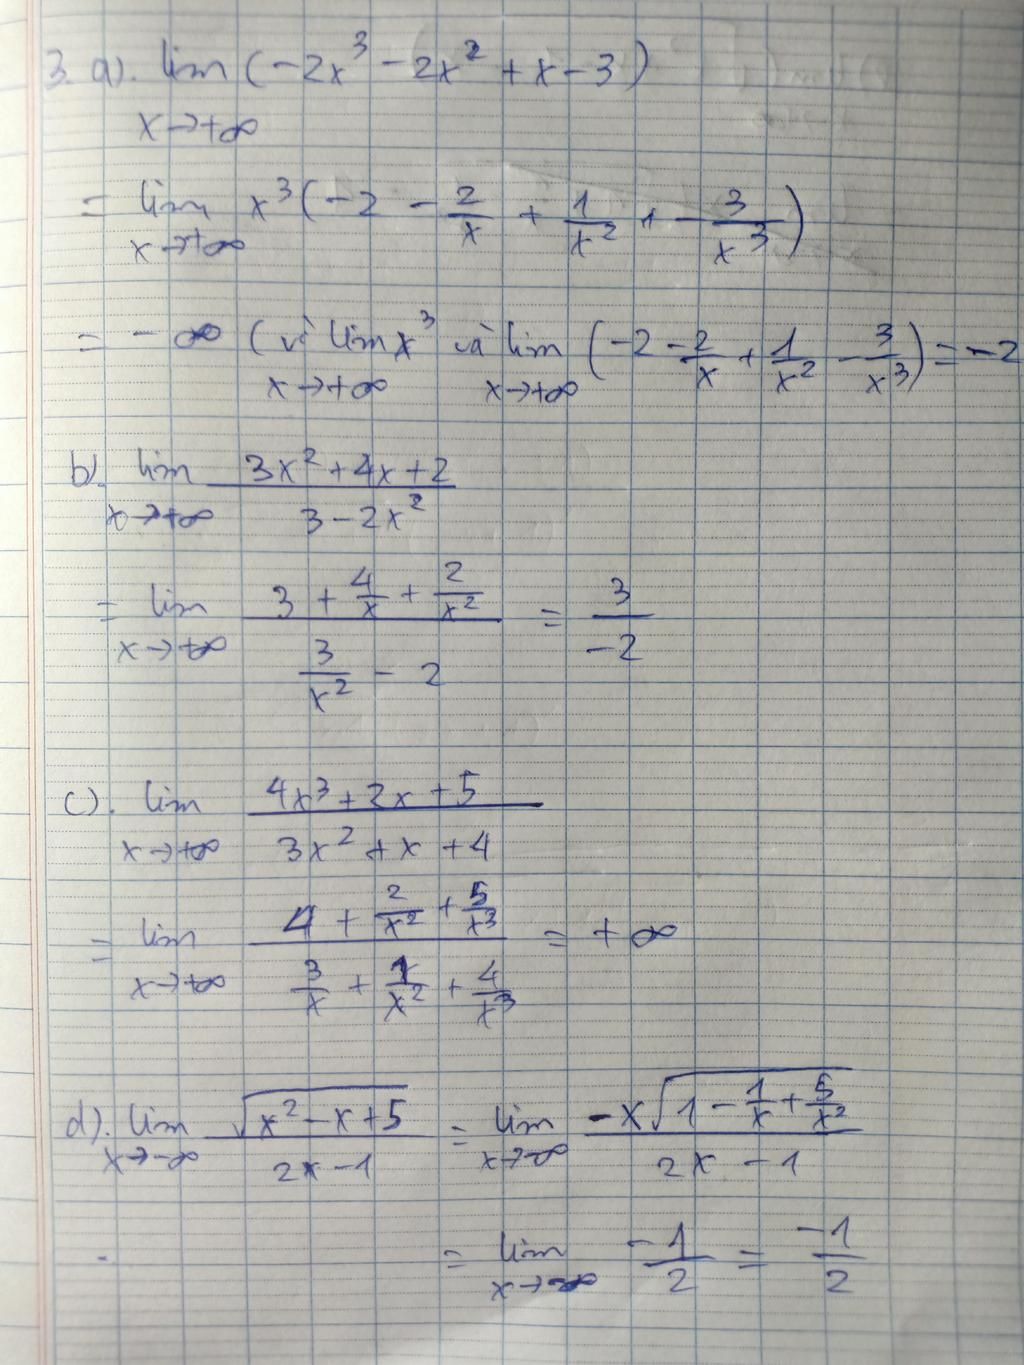 3. a). lim (-2x³ - 2x² + x - 3)
x→+∞
= lim x³(-2 - 2/x + 1/x² + - 3/x³)
x→+∞
= -∞ (vì lim x³ và lim (-2 - 2/x + 1/x² - 3/x³) = -2
x→+∞ x→+∞
b). lim (3x² + 4x + 2)/(3 - 2x²)
x→+∞
= lim (3 + 4/x + 2/x²)/(3/x² - 2) = 3/-2
x→+∞
c). lim (4x³ + 2x + 5)/(3x² + x + 4)
x→+∞
= lim (4 + 2/x² + 5/x³)/(3/x + 1/x² + 4/x³) = +∞
x→+∞
d). lim √(x² - x + 5)/(2x - 1) = lim -x√(1 - 1/x + 5/x²)/(2x - 1)
x→-∞ x→-∞
= lim -1/2 = -1/2
x→-∞